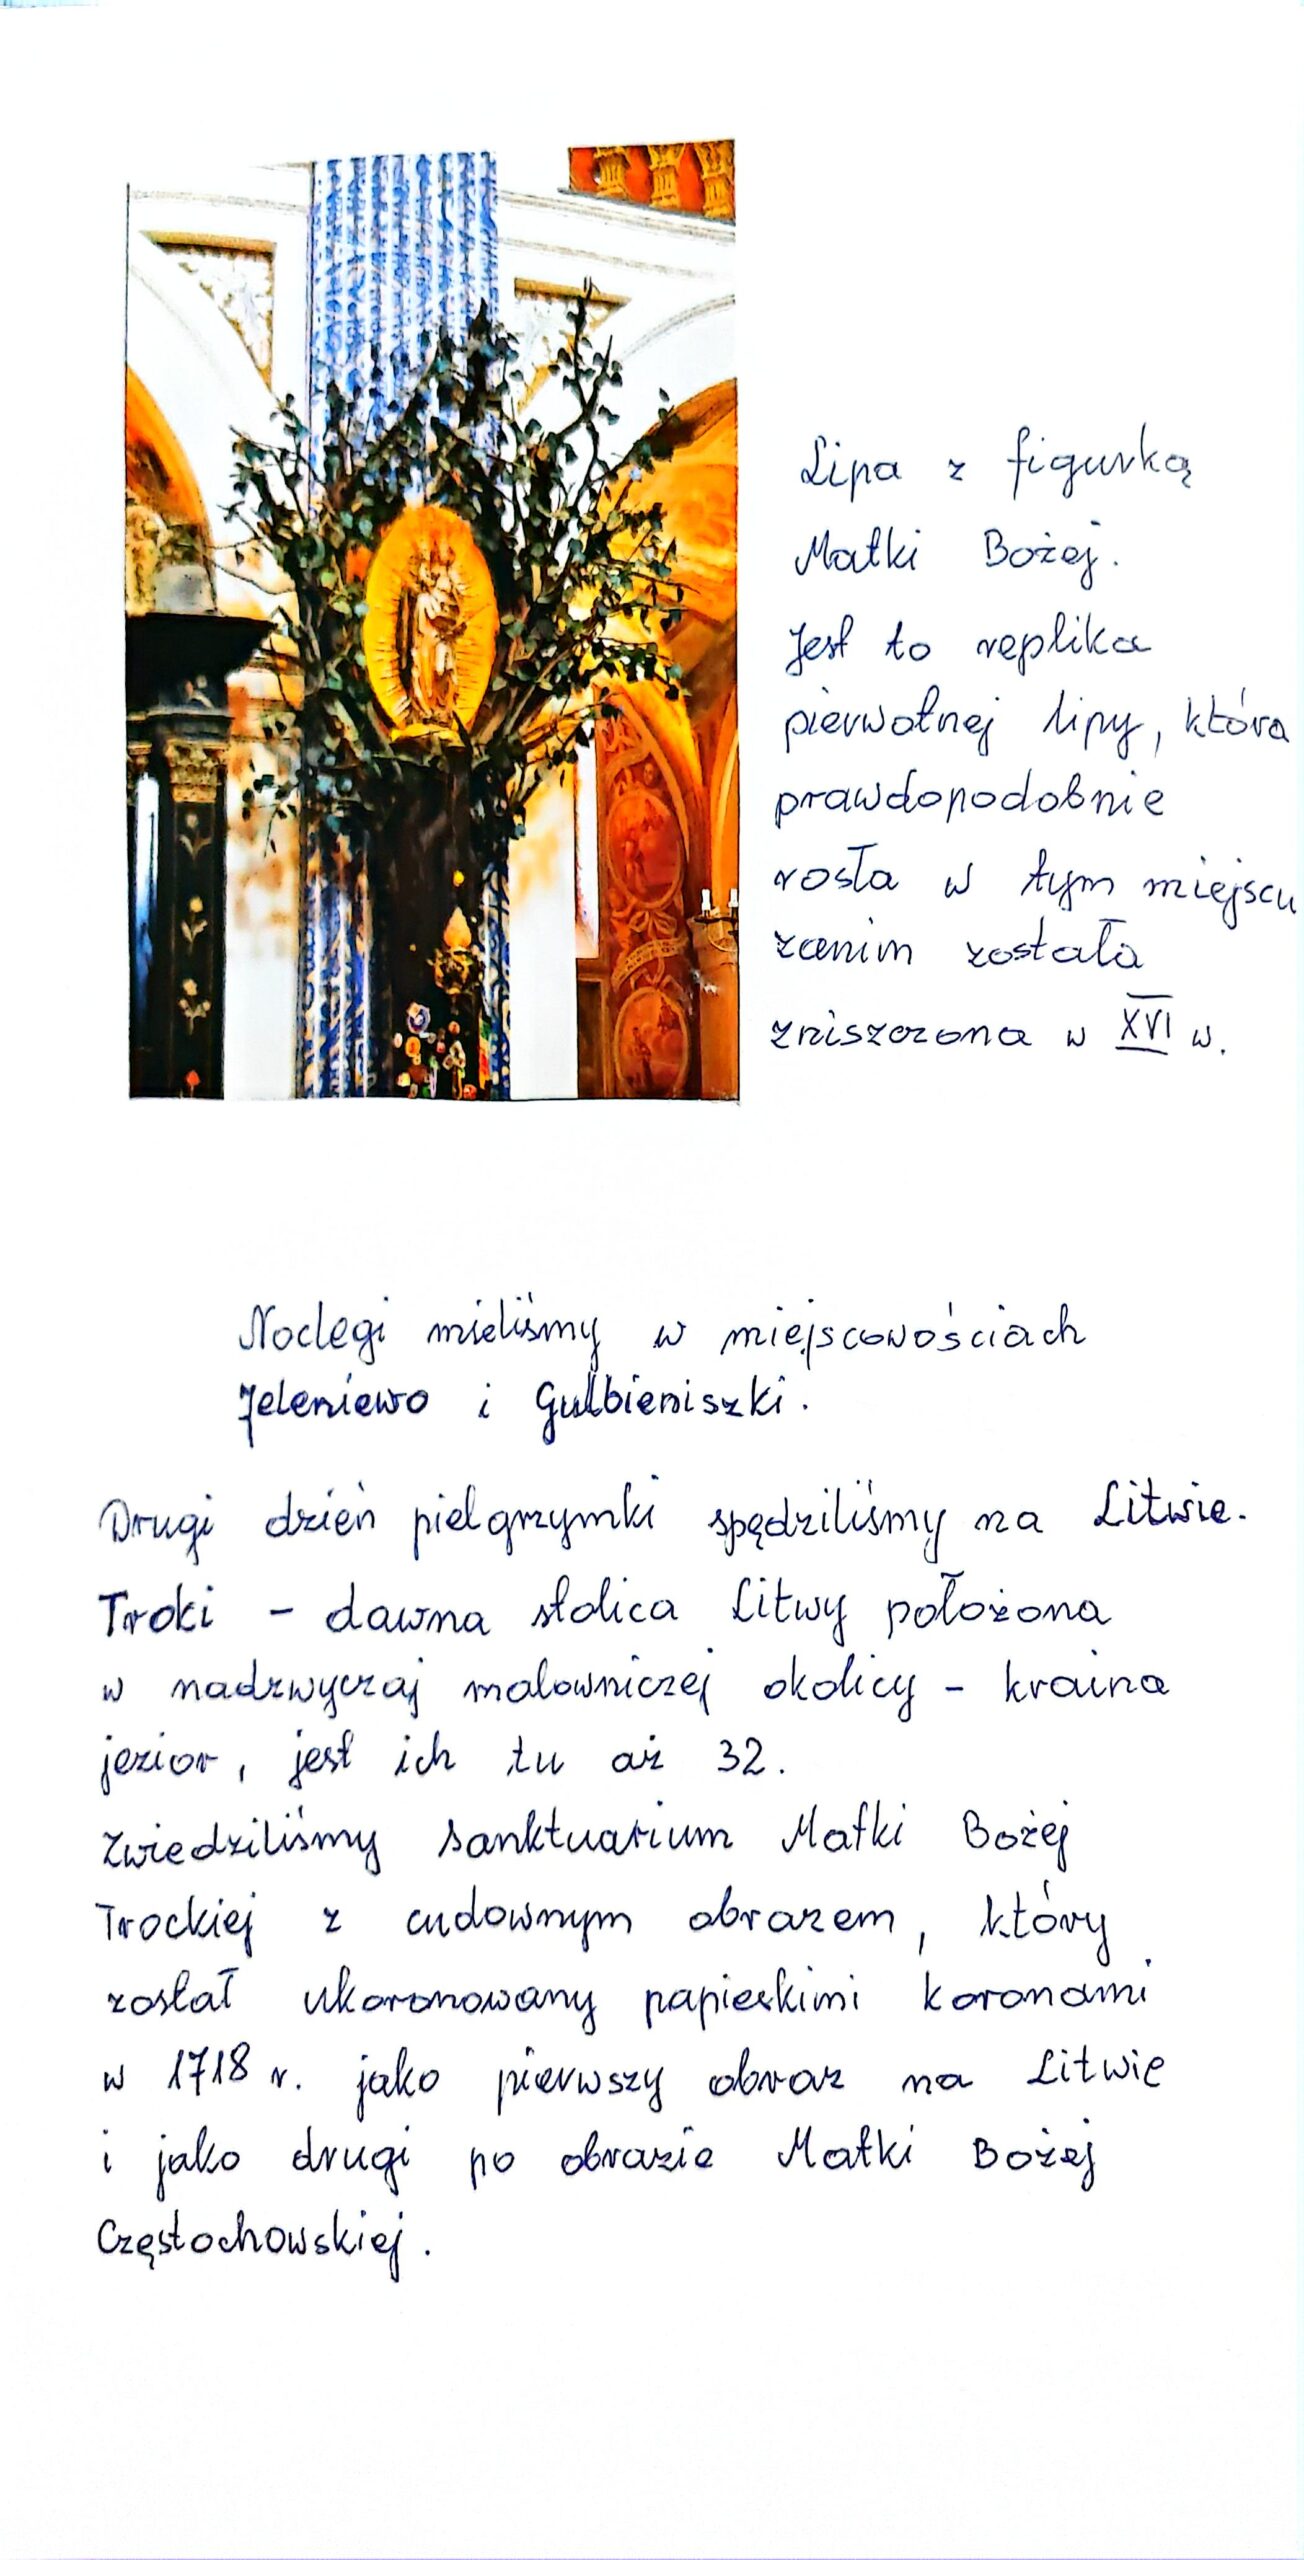 Lipa z figurką
Matki Bożej.
Jest to replika
pierwotnej lipy, która
prawdopodobnie
rosła w tym miejscu
zanim została
zniszczona w XVI w.
Noclegi mieliśmy w miejscowościach
Jeleniewo i Gulbieniszki.
Drugi dzień pielgrzymki spędziliśmy na Litwie.
Troki - dawna stolica Litwy położona
w nadzwyczaj malowniczej okolicy - kraina
jezior, jest ich tu aż 32.
Zwiedziliśmy sanktuarium Matki Bożej
Trockiej z cudownym obrazem, który
został ukoronowany papieskimi koronami
w 1718 r. jako pierwszy obraz na Litwie
i jako drugi po obrazie Matki Bożej
Częstochowskiej.